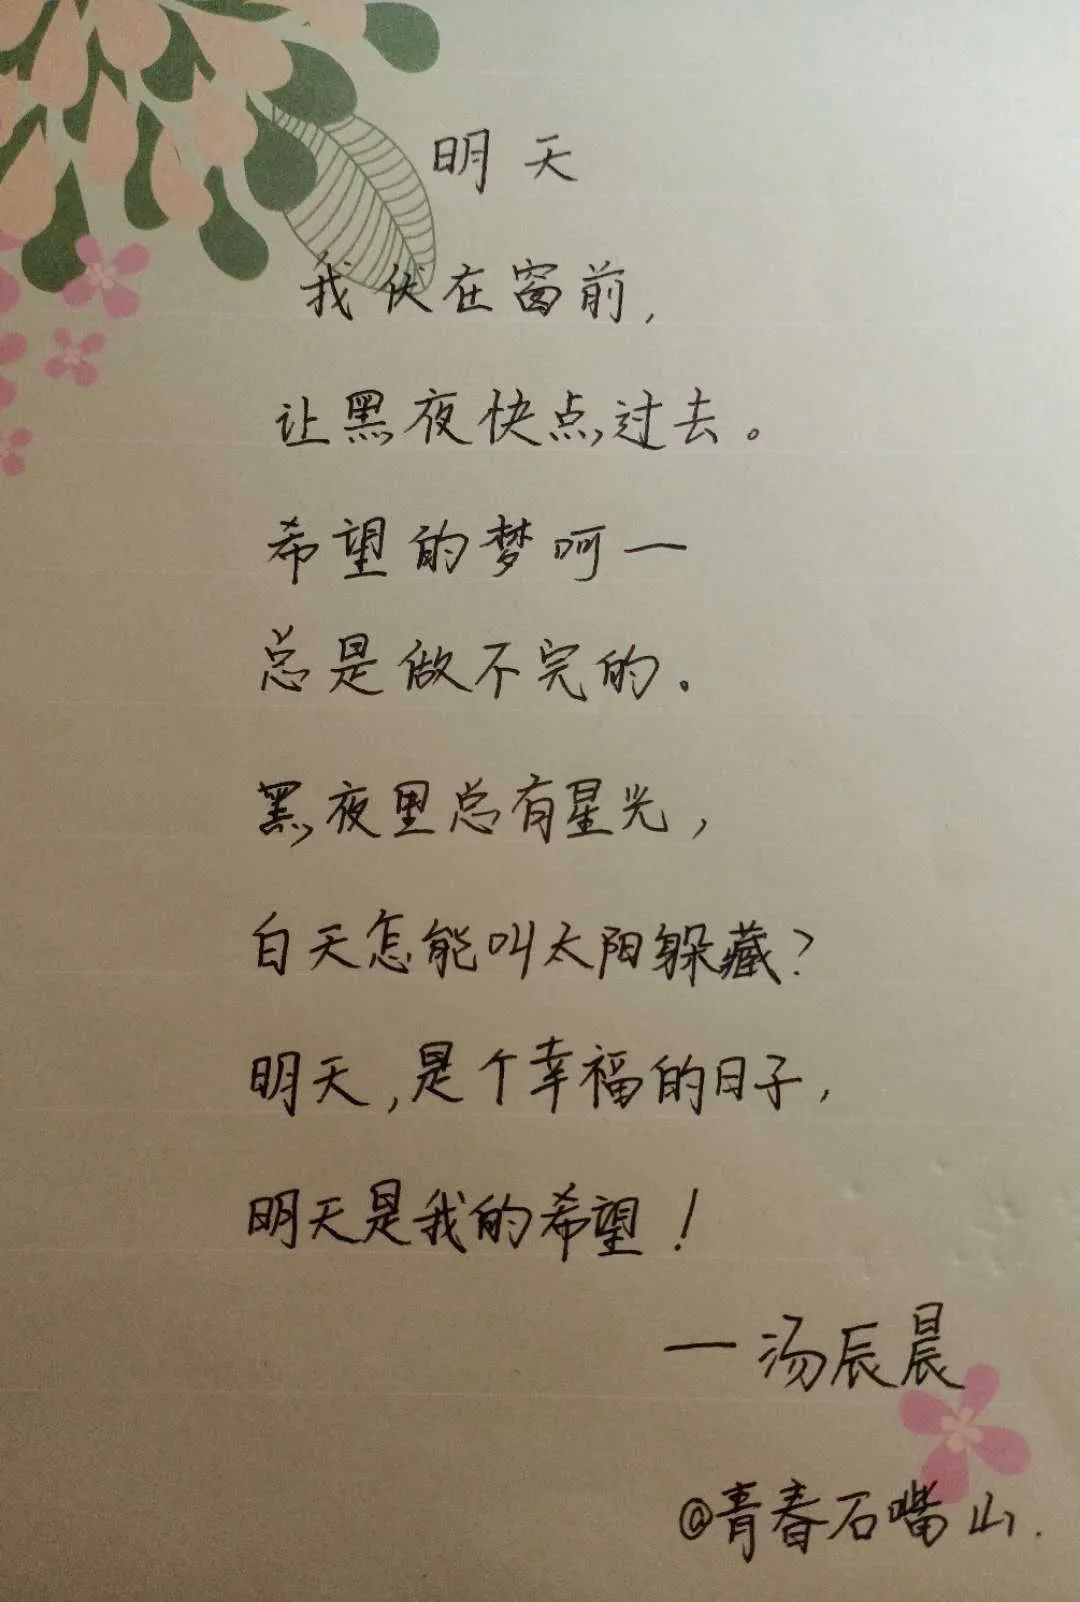 明天
我伏在窗前,
让黑夜快点过去。
希望的梦呵一
总是做不完的.
黑夜里总有星光,
白天怎能叫太阳躲藏?
明天,是个幸福的日子,
明天是我的希望!
—汤辰晨
@青春石嘴山.